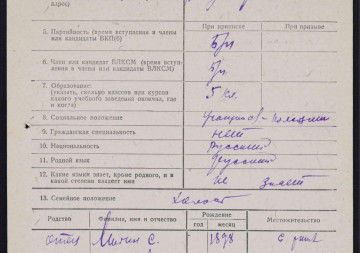 адрес)
При приписке
При призыве
5. Партийность (время вступления в члены
или кандидаты ВКПб)
Б/п
6. Член или кандидат ВЛКСМ (время всту-
пления в члены или кандидаты ВЛКСМ)
Б/п
7. Образование:
(указать, сколько классов или курсов
какого учебного заведения окончил, где
и когда)
5 кл.
8. Социальное положение
9. Гражданская специальность
нет
10. Национальность
Русский
11. Родной язык
Русский
12. Какие языки знает, кроме родного, и в
какой степени владеет ими
не знает
13. Семейное положение
Холост
Родство
Фамилия, имя и отчество
Рождение
год
месяц
Местожительство
отец
С.
1898